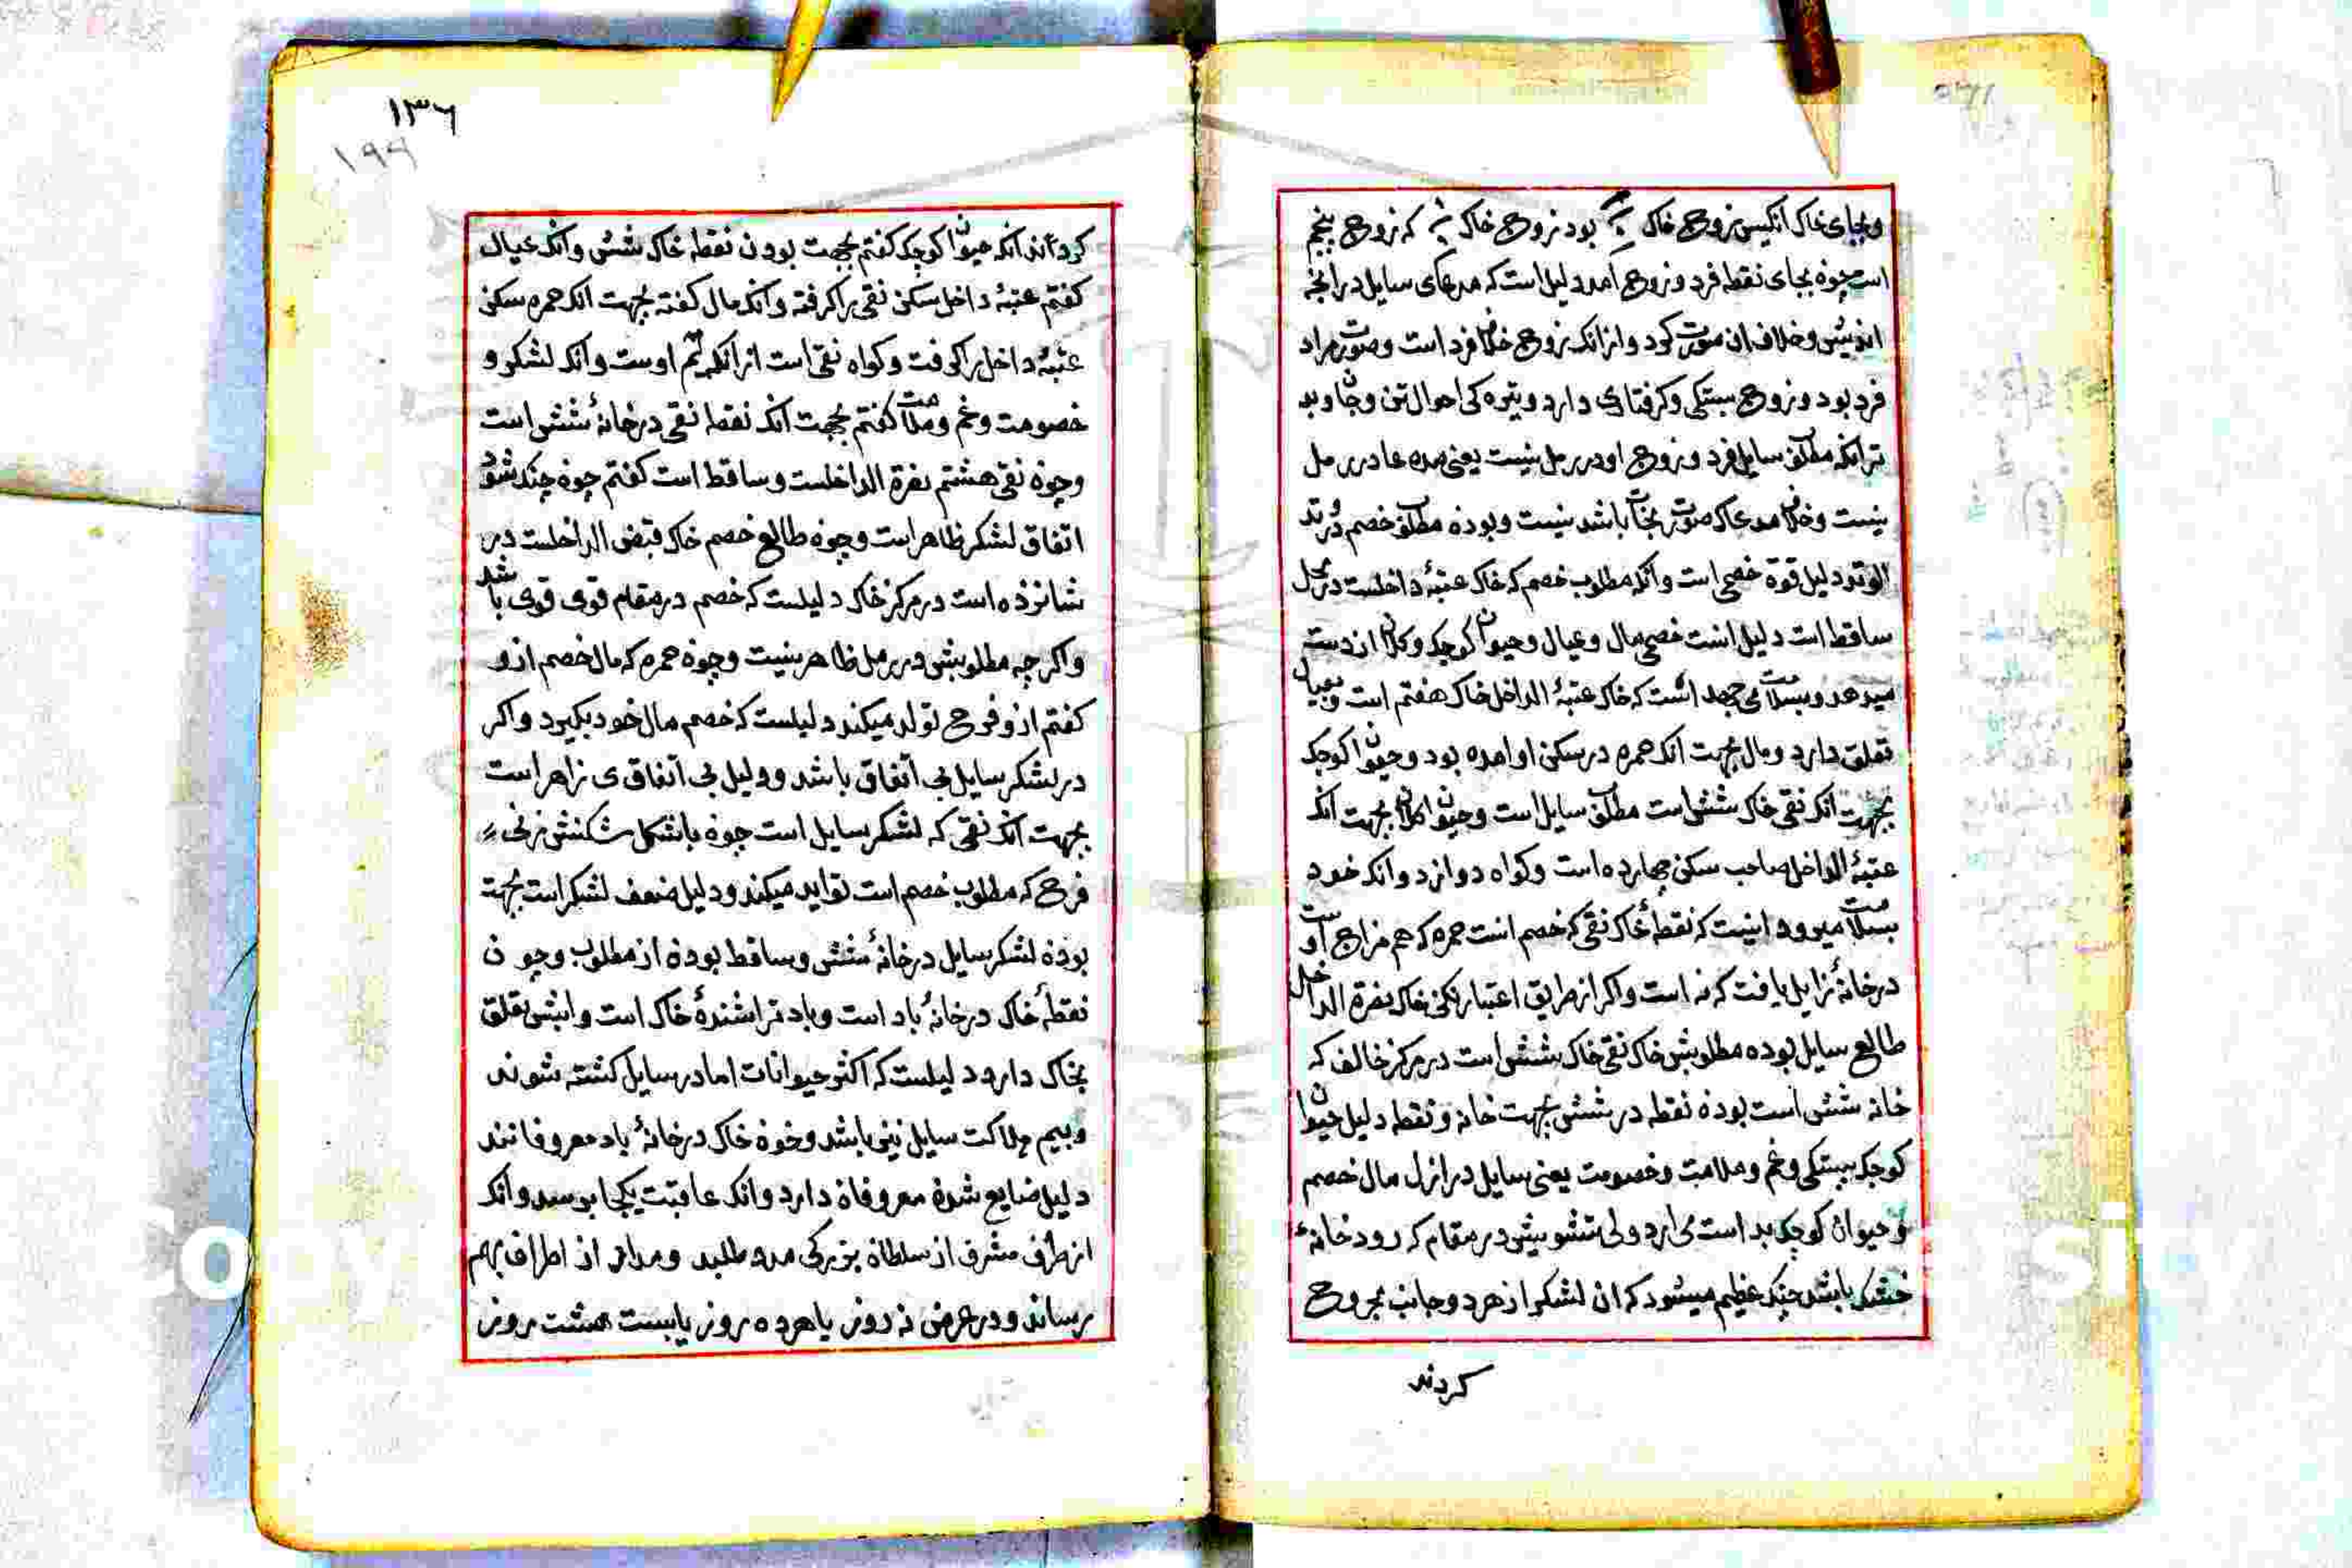 وبجای خاک انکیس زوج خاک بود زوج خاک که زوج پنجم
است چوه بجای نقطه فرد و زوج امد دلیل است که مدعای سایل درانچه
فرد بود و زوج بستکی و کرفتاری دارد وتیره کی احوال تن وجان وبد
ترانکه مطلوب سایل فرد و زوج او در رمل نیست یعنی مده عا در رمل
نیست وخلاف مدعا که صورت نجات باشد نیست وبوده مطلوب خصم در وتد
الوتود دلیل قوة خصمی است وانکه مطلوب خصم که خاک عتبهٔ داخلست در محل
ساقط است دلیل انست خصمی مال وعیال وحیوان کوچک وکلان از دست
میدهد وبسلامت می جهد انست که خاک عتبهٔ الداخل خاک هفتم است وبعیال
تعلق دارد ومال بجهت انکه حمره در سکن او امده بود وحیوان کوچک
بجهت انکه نقی خاک شش است مطلوب سایل است وحیوان کلان بجهت انکه
عتبهٔ الداخل صاحب سکن چهارده است وکواه دوازد وانکه خود
بسلامت میرود اینست که نقطهٔ خاک نقی که خصم است حمره که هم مزاج اوست
درخانهٔ زایل یافت که نه است واکر از طریق اعتبار کنی خاک نفرة الداخل
طالع سایل بوده مطلوبش خاک نقی خاک شش است در مرکز خالف که
خانه شش است بوده نقطه در شش بجهت خانه ونقطه دلیل حیوان
کوچک بستکی وغم وملامت وخصومت یعنی سایل در ازل مال خصم
وحیوان کوچک بد است می ارد ولی تشویش در مقام که رود خانهٔ
خشک باشد جنک عظیم میشود که ان لشکر از هر دو جانب مجروح
کردند
١٣٦
١٩٩
کرد اند انکه حیوان کوچک کفتم بجهت بودن نقطه خاک شش وانکه عیال
کفتم عتبهٔ داخل سکن نقی را کرفته وانکه مال کفته بجهت انکه حمره سکن
عتبهٔ داخل را کرفت وکواه نقی است از انکه او ست وانکه لشکر و
خصومت وغم وملامت کفتم بجهت انکه نقطه نقی درخانهٔ شش است
وچوه نقی هشتم نفرة الداخلست وساقط است کفتم چوه جنک شود
اتفاق لشکر ظاهر است وچوه طالع خصم خاک قبض الداخلست در
شانزده است در مرکز خاک دلیلست که خصم در مقام قوی قوی باشد
واکر چه مطلوبش در رمل ظاهر نیست وچوه حمره که مال خصم ازو
کفتم ازو فرح تولد میکند دلیلست که خصم مال خود بکیرد واکر
در لشکر سایل بی اتفاق باشد ودلیل بی اتفاق ی زاهر است
بجهت انکه نقی که لشکر سایل است چوه با شکل شکنش زنی
فرح که مطلوب خصم است تواید میکند ودلیل ضعف لشکر است بجهت
بوده لشکر سایل درخانهٔ شش وساقط بوده از مطلوب وچون
نقطهٔ خاک درخانهٔ باد است وباد تراشندهٔ خاک است وانبش تعلق
بخاک دارد دلیلست که اکثر حیوانات اما در سایل کشته شوند
وبیم هلاکت سایل نیی باشد وخوه خاک درخانهٔ باد معروفانند
دلیل ضایع شده معروفان دارد وانکه عاقبت یکجا برسد وانکه
از طرف مشرق از سلطان بزرکی مدد طلبد ومداد از اطراف بهم
رساند ودر عرض نه روز یا هرده روز یا بیست هشت روز